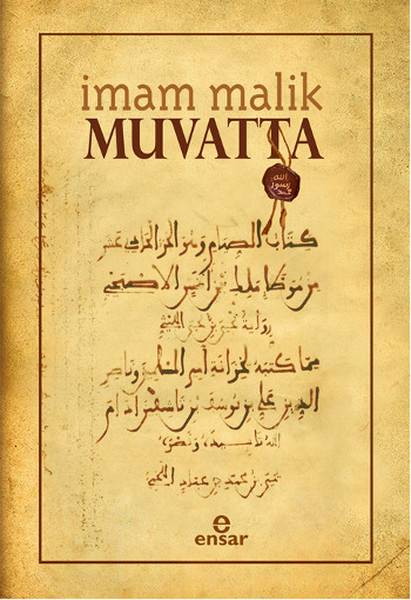 imam malik
MUVATTA
الله
رسول
محمد
كتاب الصيام وهو الجزء الحادي عشر
من موطأ مالك بن أنس الأصبحي
رواية يحيى بن يحيى الليثي
مما كتبه لخزانة أمير المسلمين وناصر
الدين علي بن يوسف بن تاشفين أدام
الله تأييده ونصره
يحيى بن محمد بن عباد اللخمي
e
ensar